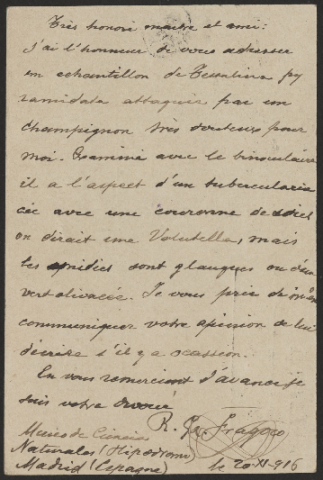 Très honoré maitre et ami:
J'ai l'honneur de vous adresser
un echantillon de Tessalina py
ramidata attaquée par un
champignon très douteux pour
moi. Examiné avec le binoculaire
il a l'aspect d'un tubercularia
cée avec une couronne de
on dirait une Volutella, mais
les sont glauques ou d'un
vert olivacée. Je vous prie de
communiquer votre opinion de lui
décrire s'il y a ocassion.
En vous remerciant d'avance je
suis votre devoué
R. Gz Fragoso
Museo de Ciencias
Naturales (Hipódromo)
Madrid (Espagne) le 20-XI-916